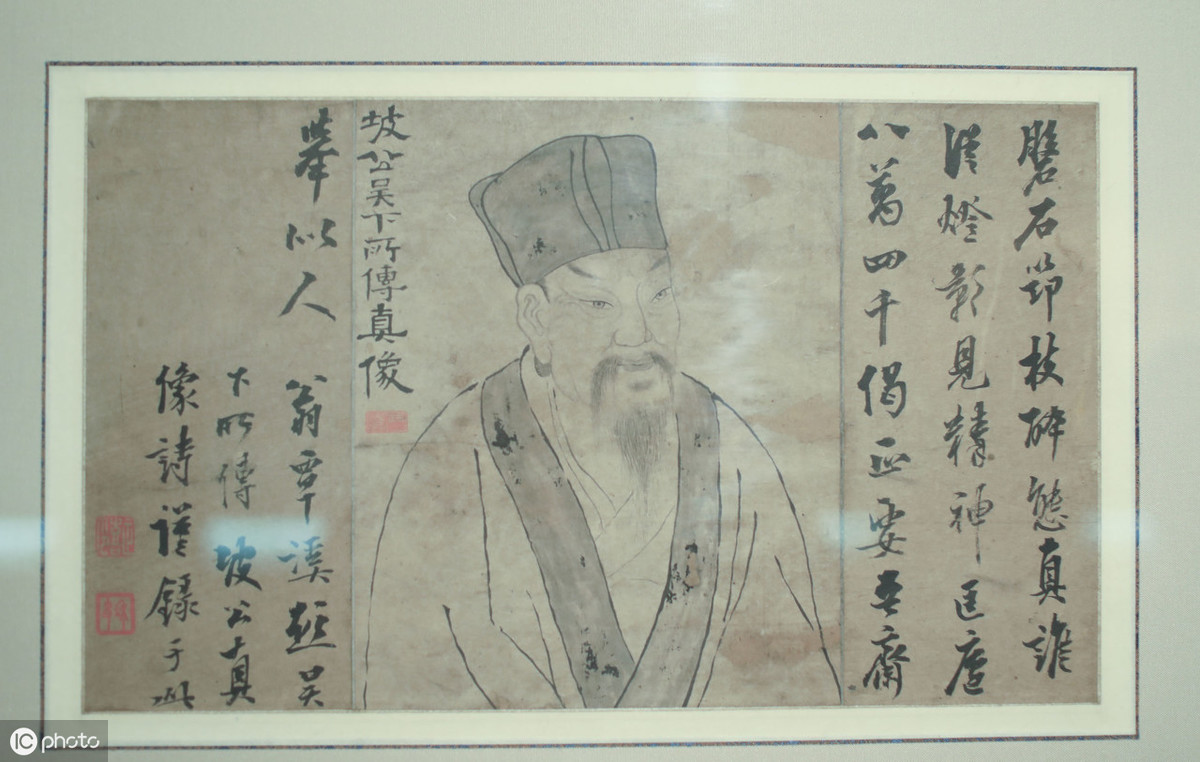 磐石筇枝醉態真誰
從燈影見精神匡廬
八萬四千偈正要吾齋
坡公吳下所傳真像
舉似人 翁覃溪題吳
下所傳坡公真
像詩謹錄于此
IC photo